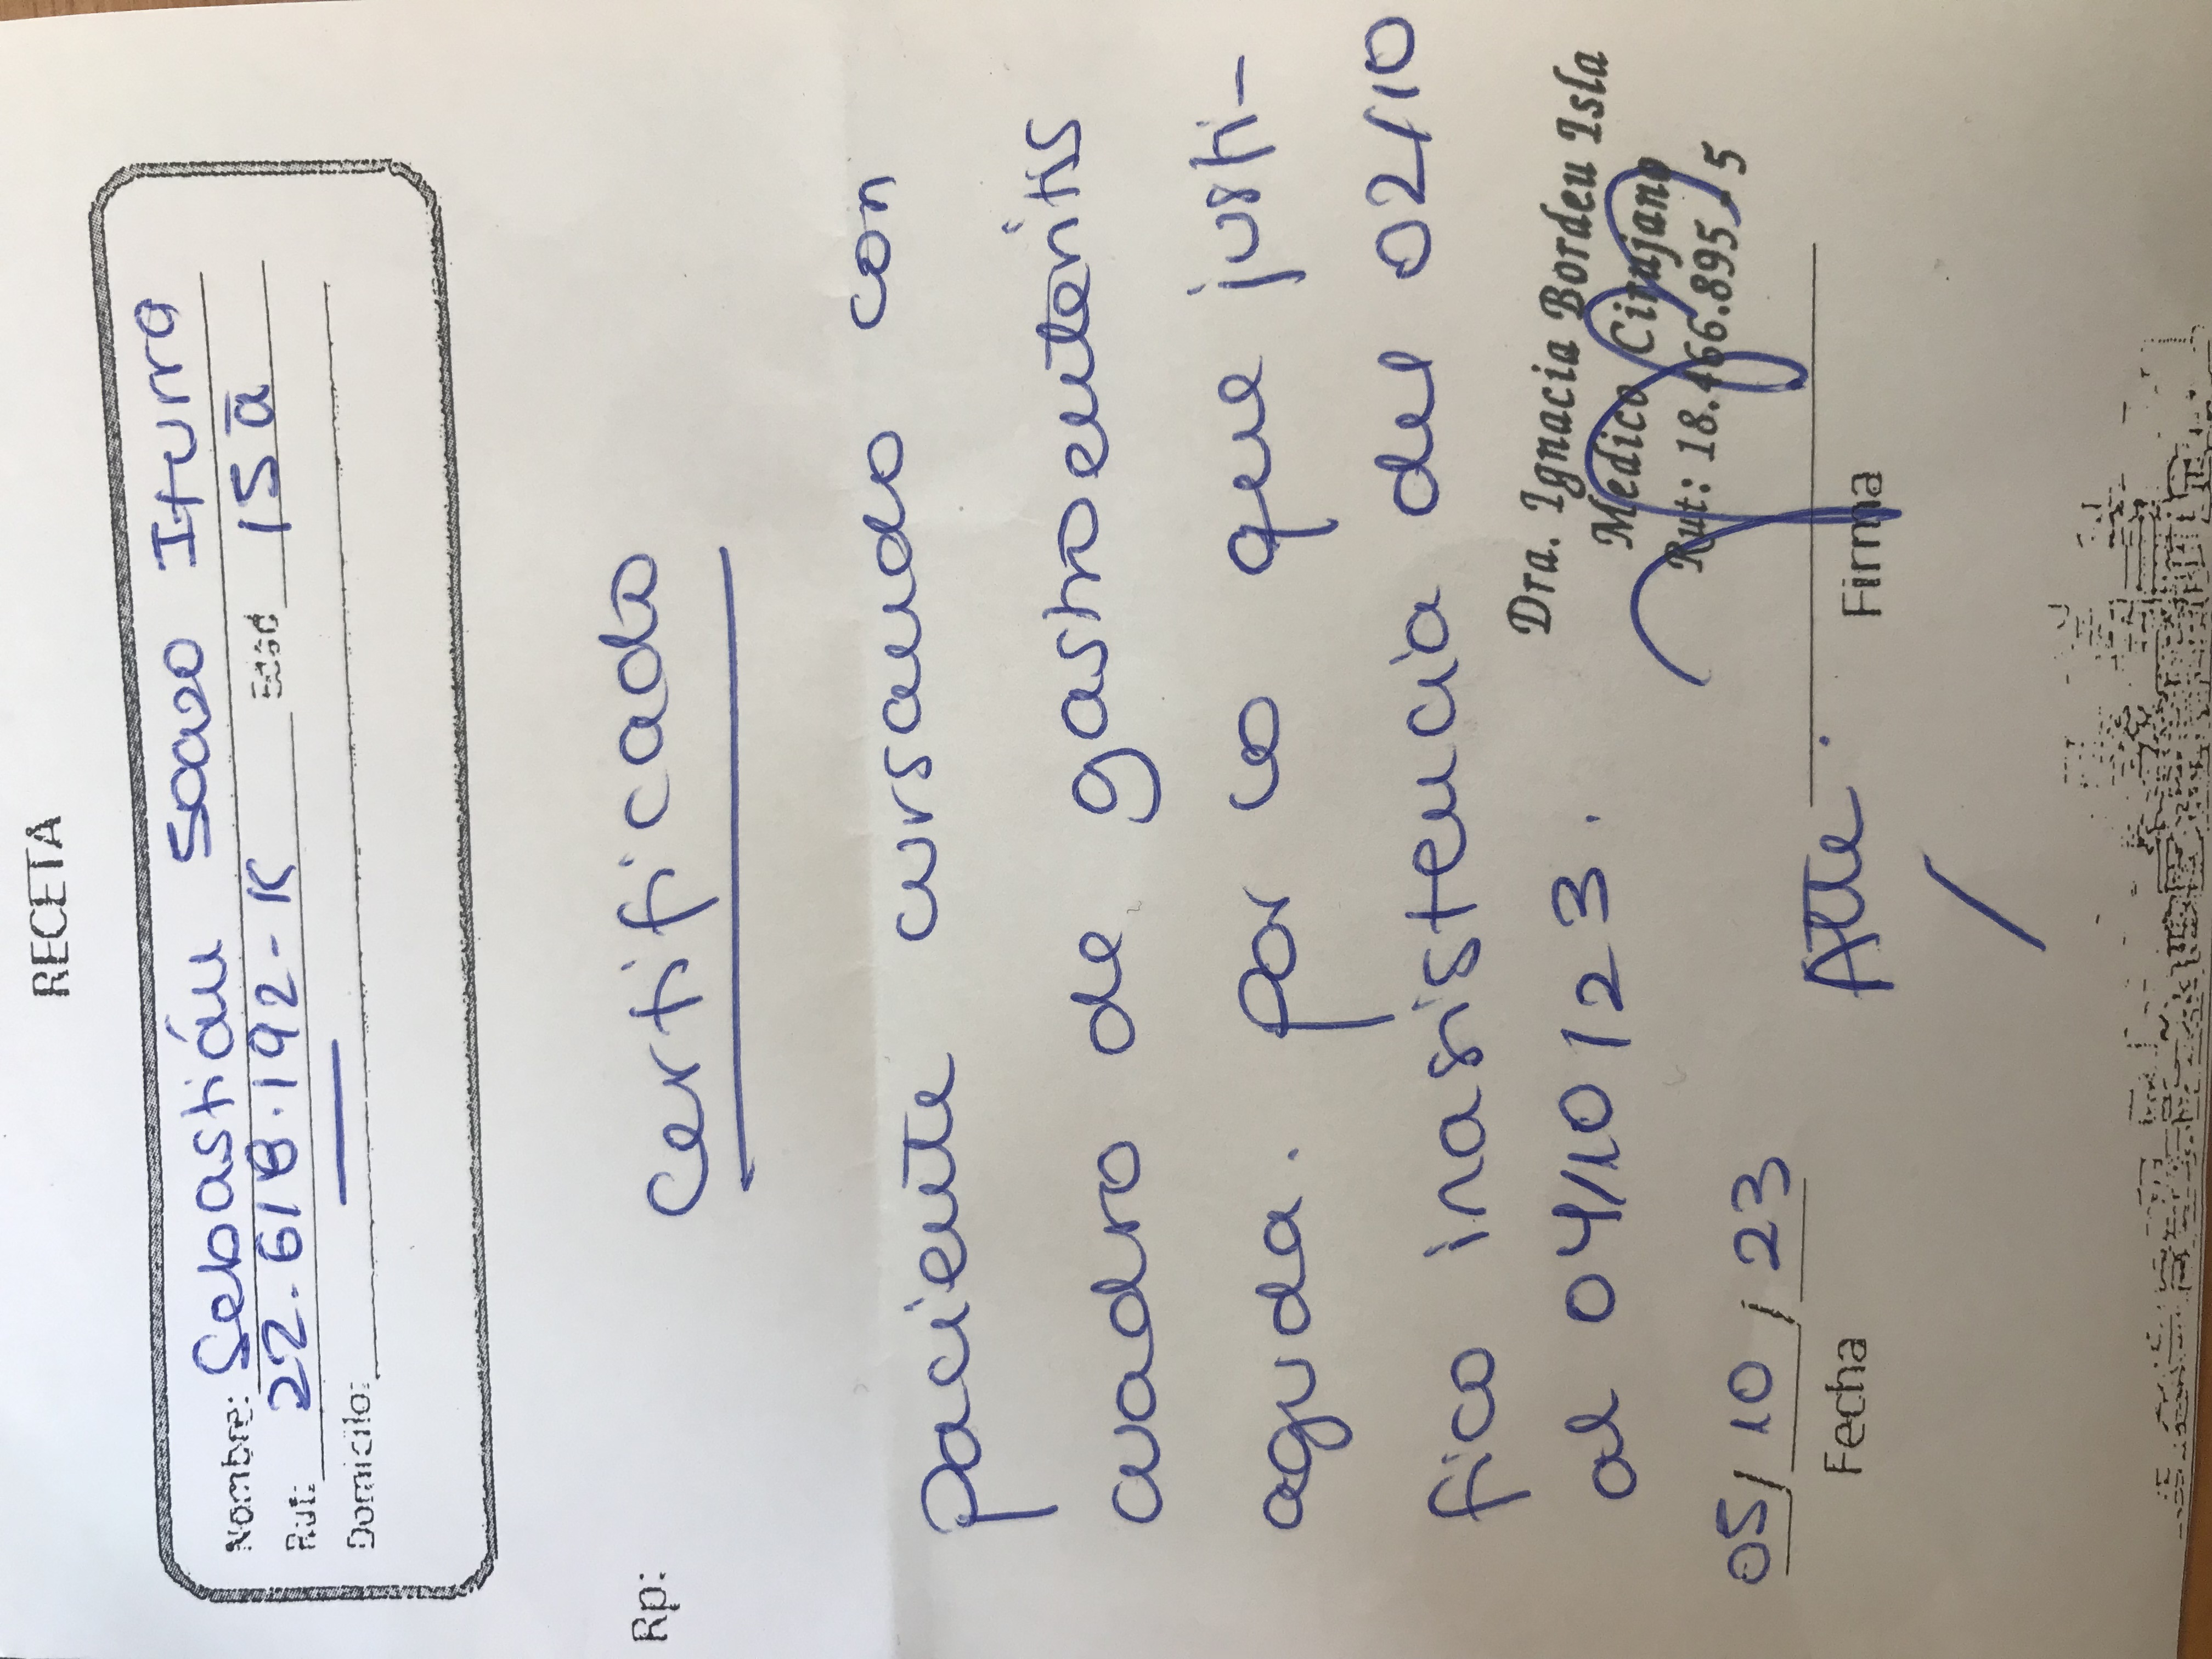 RECETA
Nombre: Sebastián Soazo Iturra
Rut: 22.618.192-K Edad 15 a
Domicilio: —
Rp:
Certificado
Paciente cursando con
cuadro de gastroenteritis
aguda. Por lo que justi-
fico inasistencia del 02/10
al 04/10/23.
Dra. Ignacia Bordeu Isla
Medico Cirujano
Rut: 18.466.895-5
05/10/23
Atte.
Fecha
Firma